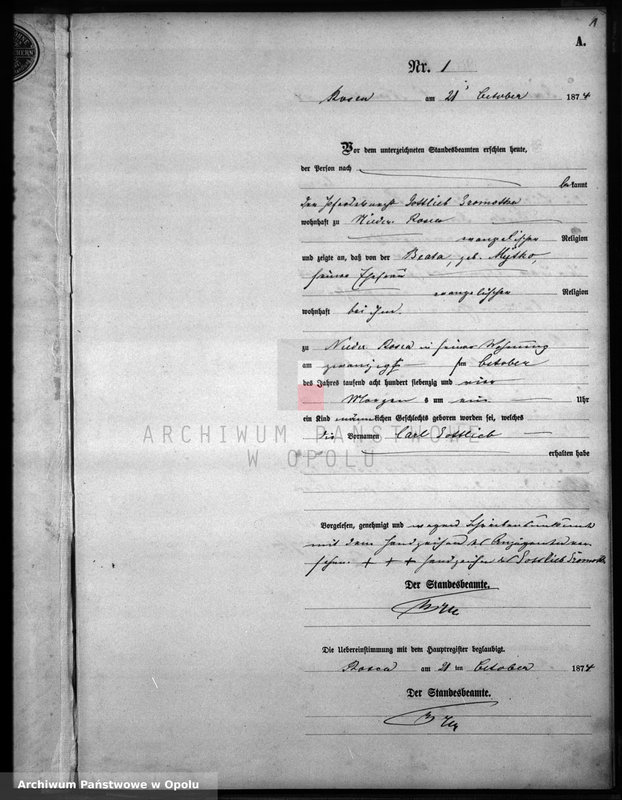 A.
Nr. 1
Rosen am 21 October 1874
Vor dem unterzeichneten Standesbeamten erschien heute,
der Person nach
bekannt
Der Pferdeknecht Gottlieb
wohnhaft zu Nieder Rosen
evangelischer Religion
und zeigte an, daß von der Beata, geb.
seiner Ehefrau
evangelischer Religion
wohnhaft bei ihm.
zu Nieder Rosen in seiner Wohnung
am zwanzigsten October
des Jahres tausend acht hundert siebenzig und vier
Morgens um ein Uhr
ein Kind männlichen Geschlechts geboren worden sei, welches
die Vornamen Carl Gottlieb
erhalten habe
Vorgelesen, genehmigt und wegen
mit dem Handzeichen des
sehen. + + + Handzeichen des Gottlieb
Der Standesbeamte.
Die Uebereinstimmung mit dem Hauptregister beglaubigt.
Rosen am 21 ten October 1874
Der Standesbeamte.
ARCHIWUM PAŃSTWOWE
W OPOLU
Archiwum Państwowe w Opolu